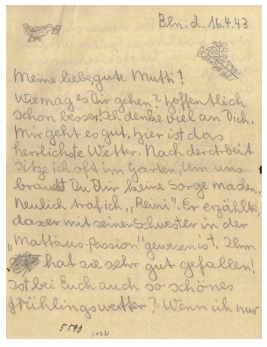 Bln. d. 16.4.43
Meine liebe, gute Mutti!
Wie mag es Dir gehen? Hoffentlich
schon besser! Ich denke viel an Dich.
Mir geht es gut. Hier ist das
herrlichste Wetter. Nach der Arbeit
sitze ich oft im Garten. Um uns
braucht Du Dir keine Sorge machen.
Neulich traf ich „Reini". Er erzählte,
dass er mit seiner Schwester in der
„Matthäus-Passion" gewesen ist. Ihm
hat sie sehr gut gefallen!
Ist bei Euch auch so schönes
Frühlingswetter? Wenn ich nur
5590